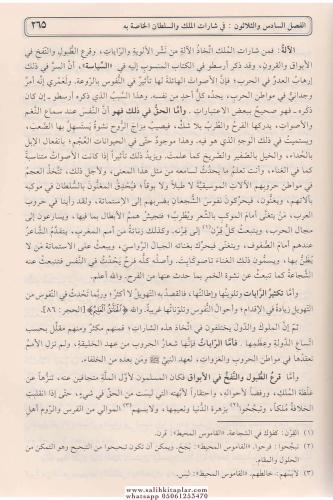 الفصل السادس والثلاثون : في شارات الملك والسلطان الخاصة به
٢٦٥
الآلة: فمن شارات المُلك اتّخاذُ الآلة مِن نَشْرِ الألوية والرَّايات، وقرع الطُّبول والنَّفخ في
الأبواق والقرون، وقد ذكر أرسطو في الكتاب المنسوب إليه في «السِّياسة»، أنَّ السرَّ في ذلك
إرهابُ العدوِّ في الحرب؛ فإنَّ الأصوات الهائلة لها تأثيرٌ في النُّفوس بالرَّوعة. ولَعَمري إنَّه أمرٌ
وجدانيٌّ في مواطن الحرب، يجدُه كلُّ أحد من نفسه. وهذا السببُ الذي ذكره أرسطو - إن كان
ذكره - فهو صحيحٌ ببعض الاعتبارات. وأمَّا الحقُّ في ذلك فهو أنَّ النَّفس عند سماع النَّغم
والأصوات، يدركها الفرحُ والطَّرب بلا شكّ، فيصيبُ مزاجَ الرُّوح نشوةٌ يستسهلُ بها الصَّعب،
ويستميتُ في ذلك الوجه الذي هو فيه. وهذا موجودٌ حتَّى في الحيوانات العُجْم؛ بانفعال الإبل
بالحُداء، والخيل بالصَّفير والصَّريخ كما علمت. ويزيد ذلك تأثيراً إذا كانت الأصواتُ متناسبةً
كما في الغناء، وأنت تعلمُ ما يَحدُثُ لسامعه من مثل هذا المعنى، ولأجل ذلك، تتَّخذُ العجمُ
في مواطن حروبهم الآلات الموسيقيَّةَ لا طبلاً ولا بوقاً؛ فيُحْدِقُ المغنُّون بالسُّلطان في موكبه
بآلاتهم، ويغنُّون، فيحرِّكون نفوسَ الشُّجعان بضربهم إلى الاستماتة. ولقد رأينا في حروب
العرب، مَن يتغنَّى أمامَ الموكب بالشِّعر ويُطرِب؛ فتجيشُ هممُ الأبطال بما فيها، ويسارعون إلى
مجال الحرب، وينبعثُ كلُّ قِرْنٍ(١) إلى قِرْنه. وكذلك زناتةُ من أمم المغرب، يتقدَّمُ الشاعرُ
عندهم أمامَ الصُّفوف، ويتغنَّى فيحرِّك بغنائه الجبالَ الرَّواسي، ويبعثُ على الاستماتة مَن لا
يَظُنُّ بها، ويسمُّون ذلك الغناءَ تاصوكايت. وأصلُه كلُّه فرحٌ يَحدُثُ في النَّفس فتنبعثُ عنه
الشَّجاعةُ كما تنبعثُ عن نشوة الخمر بما حدث عنها من الفرح. والله أعلم.
وأمَّا تكثيرُ الرَّايات وتلوينُها وإطالتُها، فالقصدُ به التَّهويلُ لا أكثر؛ وربَّما تَحدُثُ في النُّفوس من
التَّهويل زيادةٌ في الإقدام؛ وأحوالُ النُّفوس وتلويناتُها غريبة. والله ﴿الْخَلَّاقُ الْعَلِيمُ﴾ [الحجر: ٨٦].
ثمَّ إنَّ الملوك والدُّول يختلفون في اتِّخاذ هذه الشارات؛ فمنهم مكثرٌ ومنهم مقلِّل بحسب
اتِّساع الدَّولة وعِظَمها. فأمَّا الرَّاياتُ فإنَّها شعارُ الحروب من عهد الخليقة، ولم تزل الأممُ
تعقدُها في مواطن الحروب والغزوات، ولعهد النبيِّ ﷺ ومَن بعده من الخلفاء.
وأمَّا قرعُ الطُّبول والنَّفخُ في الأبواق فكان المسلمون لأوَّل الملَّة متجافين عنه، تنزُّهاً عن
غلظة المُلك، ورفضاً لأحواله، واحتقاراً لأبَّهته التي ليست من الحقِّ في شيء، حتَّى إذا انقلبت
الخلافةُ مُلكاً، وتبجَّحوا(٢) بزهرة الدُّنيا ونعيمها، ولابسهم(٣) الموالي من الفرس والرُّوم أهل
(١) القرن: كفؤك في الشجاعة. «القاموس المحيط»: قرن.
(٢) تبجحوا: فرحوا. «القاموس المحيط»: بجح. ويمكن أن تكون تبحبحوا من التبحبح وهو التمكن من
الحلول والمقام.
(٣) لابسهم: خالطهم. «القاموس المحيط»: لبس.
www.salihkitaplar.com
whatsapp 05061253470